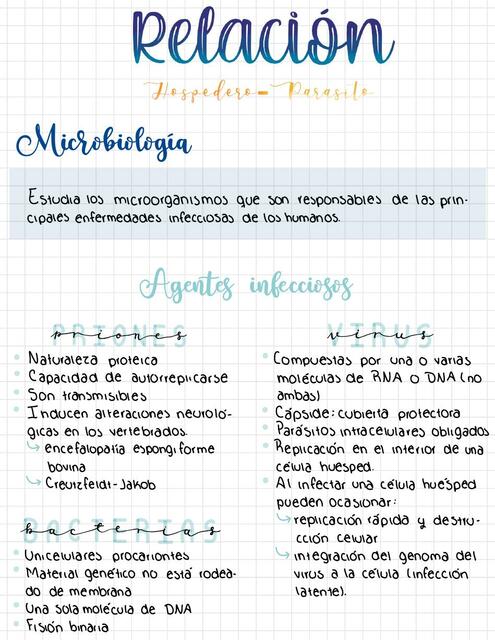 Relación
Hospedero - Parasito
Microbiología
Estudia los microorganismos que son responsables de las prin-
cipales enfermedades infecciosas de los humanos.
Agentes infecciosos
PRIONES
priones
Naturaleza proteica
Capacidad de autorreplicarse
Son transmisibles
Inducen alteraciones neuroló-
gicas en los vertebrados.
↳ encefalopatía espongiforme
bovina
↳ Creutzfeldt-Jakob
BACTERIAS
bacterias
Unicelulares procariontes
Material genético no está rodea-
do de membrana
Una sola molécula de DNA
Fisión binaria
VIRUS
virus
Compuestas por una o varias
moléculas de RNA o DNA (no
ambas)
Cápside: cubierta protectora
Parásitos intracelulares obligados
Replicación en el interior de una
célula huesped.
Al infectar una célula huésped
pueden ocasionar:
↳ replicación rápida y destru-
cción celular
↳ integración del genoma del
virus a la célula (infección
latente).